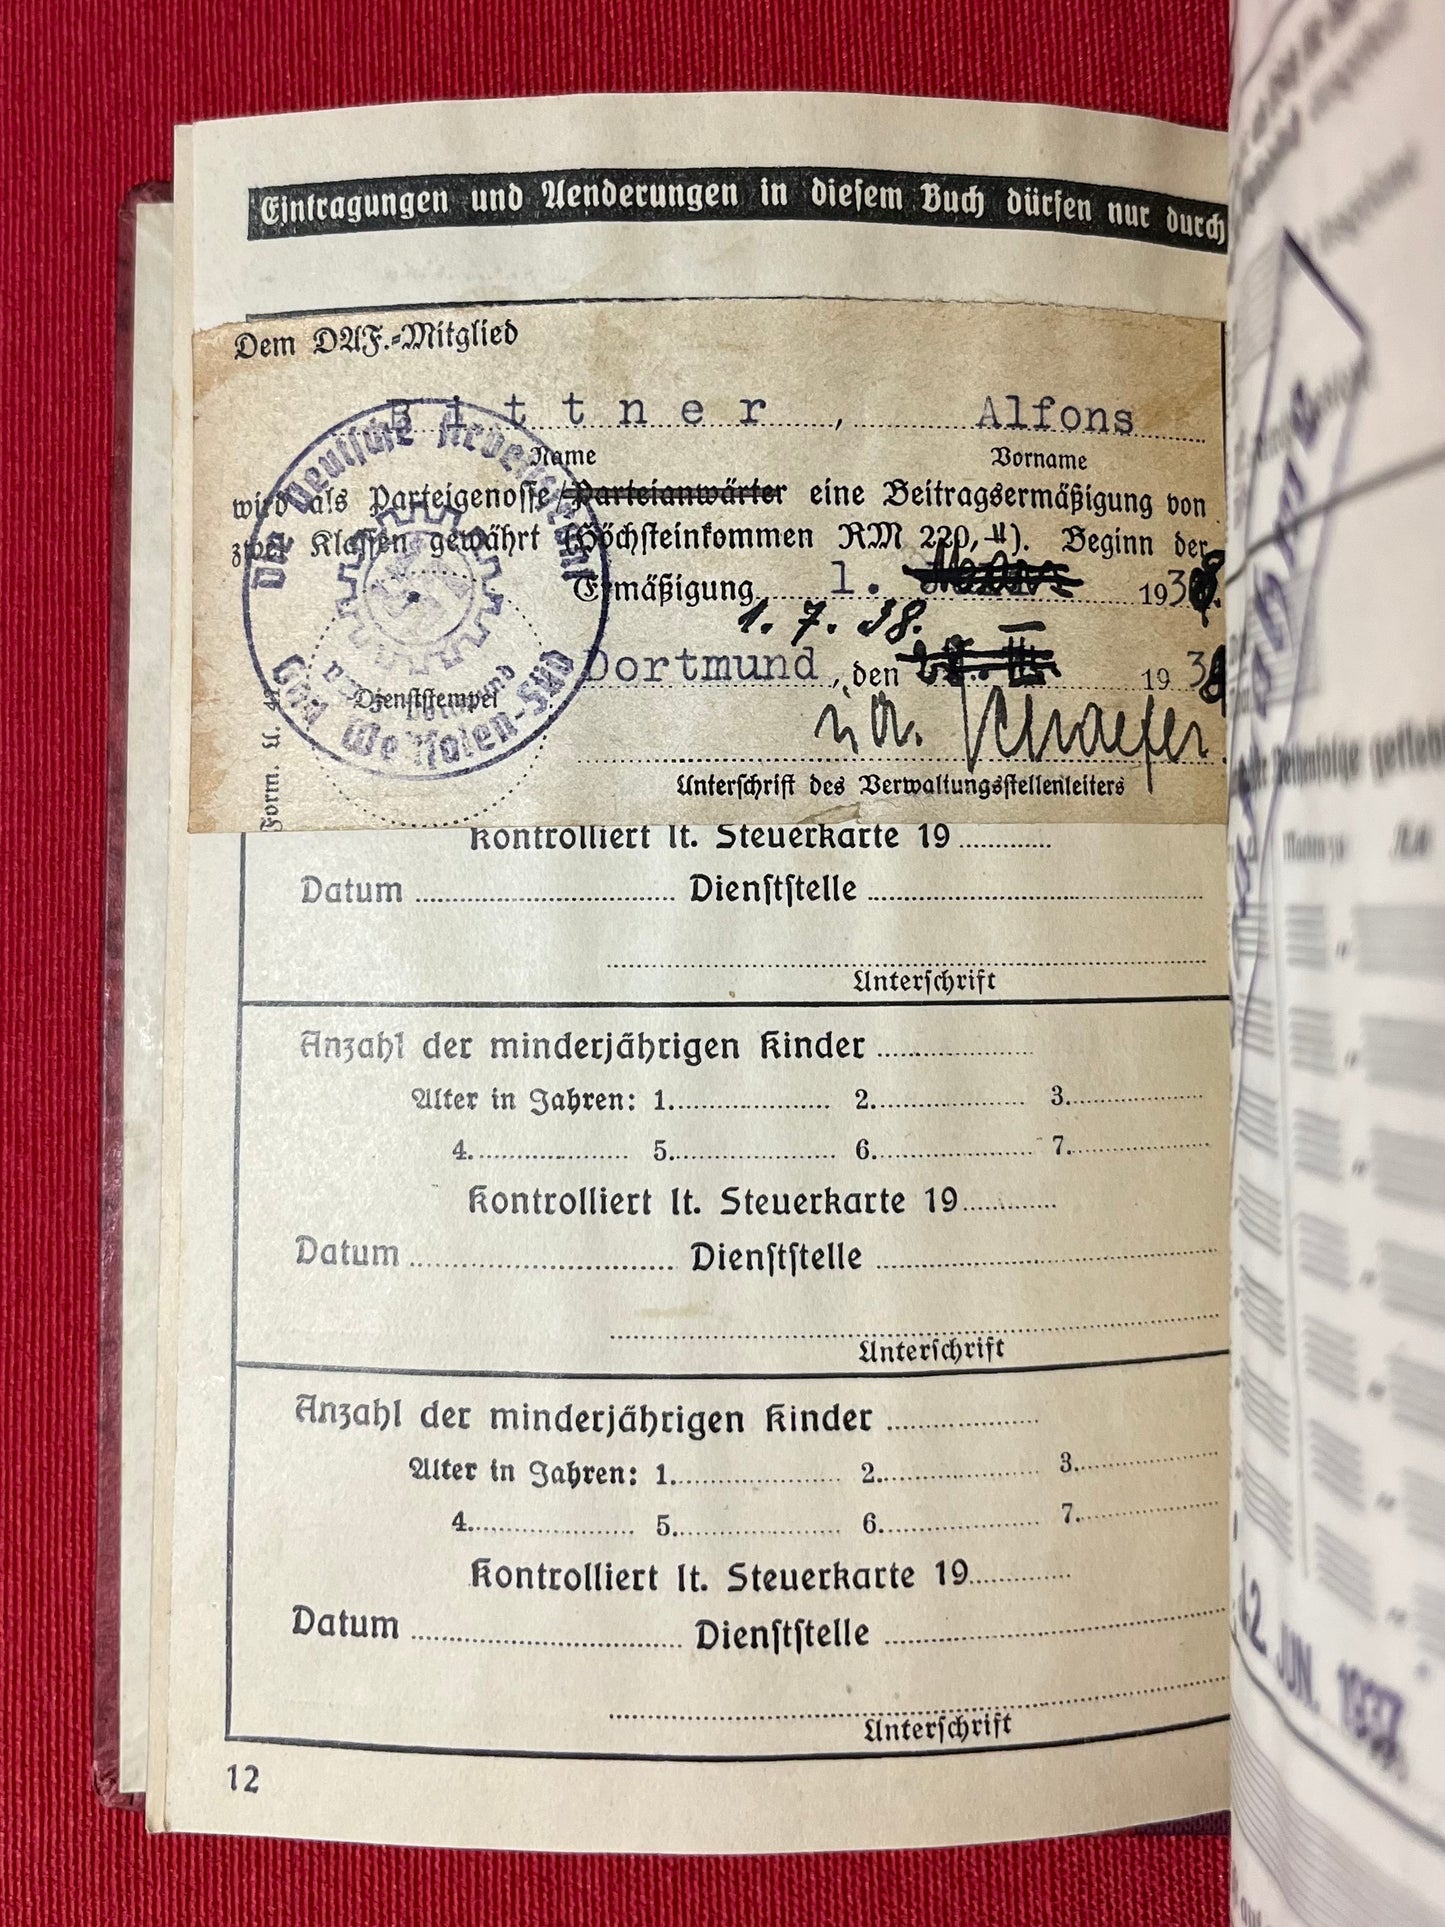 Eintragungen und Aenderungen in diesem Buch dürfen nur durch
Dem DAF.-Mitglied
Bittner, Alfons
Name Vorname
wird als Parteigenosse/Parteianwärter eine Beitragsermäßigung von
zwei Klassen gewährt (Höchsteinkommen RM 220,-). Beginn der
Ermäßigung 1. 1938.
1. 7. 38.
Dortmund, den 1938
i.A. Schaefer
Dienststempel
Unterschrift des Verwaltungsstellenleiters
Form. U. 4
Die Deutsche Arbeitsfront
Gau Westfalen-Süd
Kontrolliert lt. Steuerkarte 19
Datum Dienststelle
Unterschrift
Anzahl der minderjährigen Kinder
Alter in Jahren: 1. 2. 3.
4. 5. 6. 7.
Kontrolliert lt. Steuerkarte 19
Datum Dienststelle
Unterschrift
Anzahl der minderjährigen Kinder
Alter in Jahren: 1. 2. 3.
4. 5. 6. 7.
Kontrolliert lt. Steuerkarte 19
Datum Dienststelle
Unterschrift
12
Reihenfolge geklebt
2. JUN. 1937